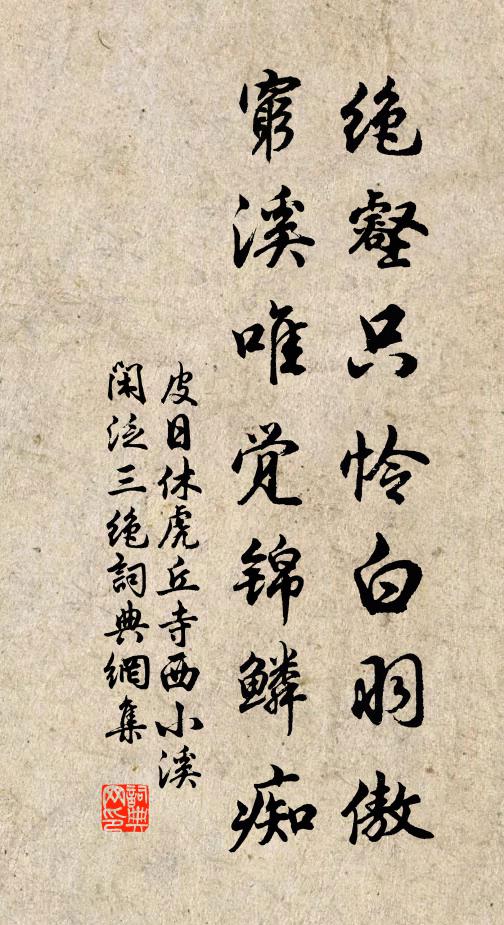 绝壑只怜白羽傲
穷溪唯觉锦鳞痴
皮日休虎丘寺西小溪
闲泛三绝詞典網集
詞典网印